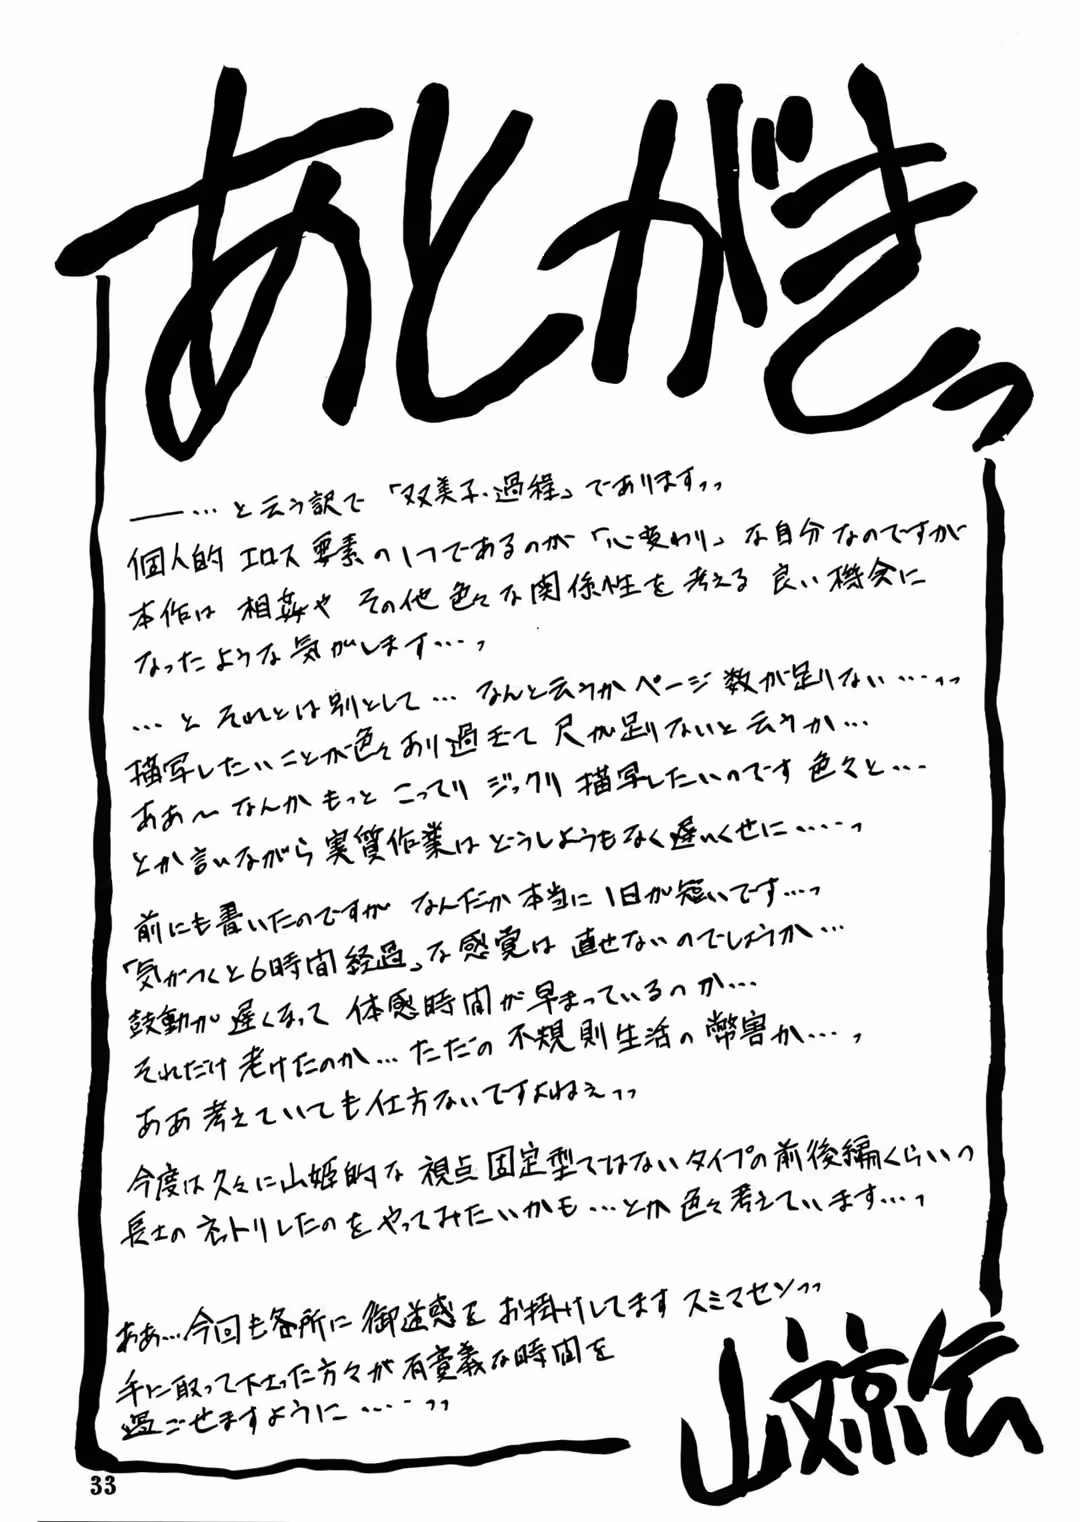 あとがきっ
――…と云う訳で「双美子・過程」でありますッッ
個人的エロス要素の1つであるのが「心変わり」な自分なのですが
本作は相姦やその他色々な関係性を考える良い機会に
なったような気がします…っ
…とそれとは別として…なんと云うかページ数が足りない…ッッ
描写したいことが色々あり過ぎて尺が足りないと云うか…
ああ～なんかもっとこってりジックリ描写したいのです色々と…
とか言いながら実質作業はどうしようもなく遅いくせに……っ
前にも書いたのですがなんだか本当に1日が短いです…っ
「気がつくと6時間経過」な感覚は直せないのでしょうか…
鼓動が遅くなって体感時間が早まっているのか…
それだけ老けたのか…ただの不規則生活の弊害か…っ
ああ考えていても仕方ないですよねぇッッ
今度は久々に山姫的な視点固定型ではないタイプの前後編くらいの
長士のネットリしたのをやってみたいかも…とか色々考えています…っ
ああ…今回も各所に御迷惑をお掛けしてますスミマセンッッ
手に取って下さった方々が有意義な時間を
過ごせますように……ッッ
山文京伝
33